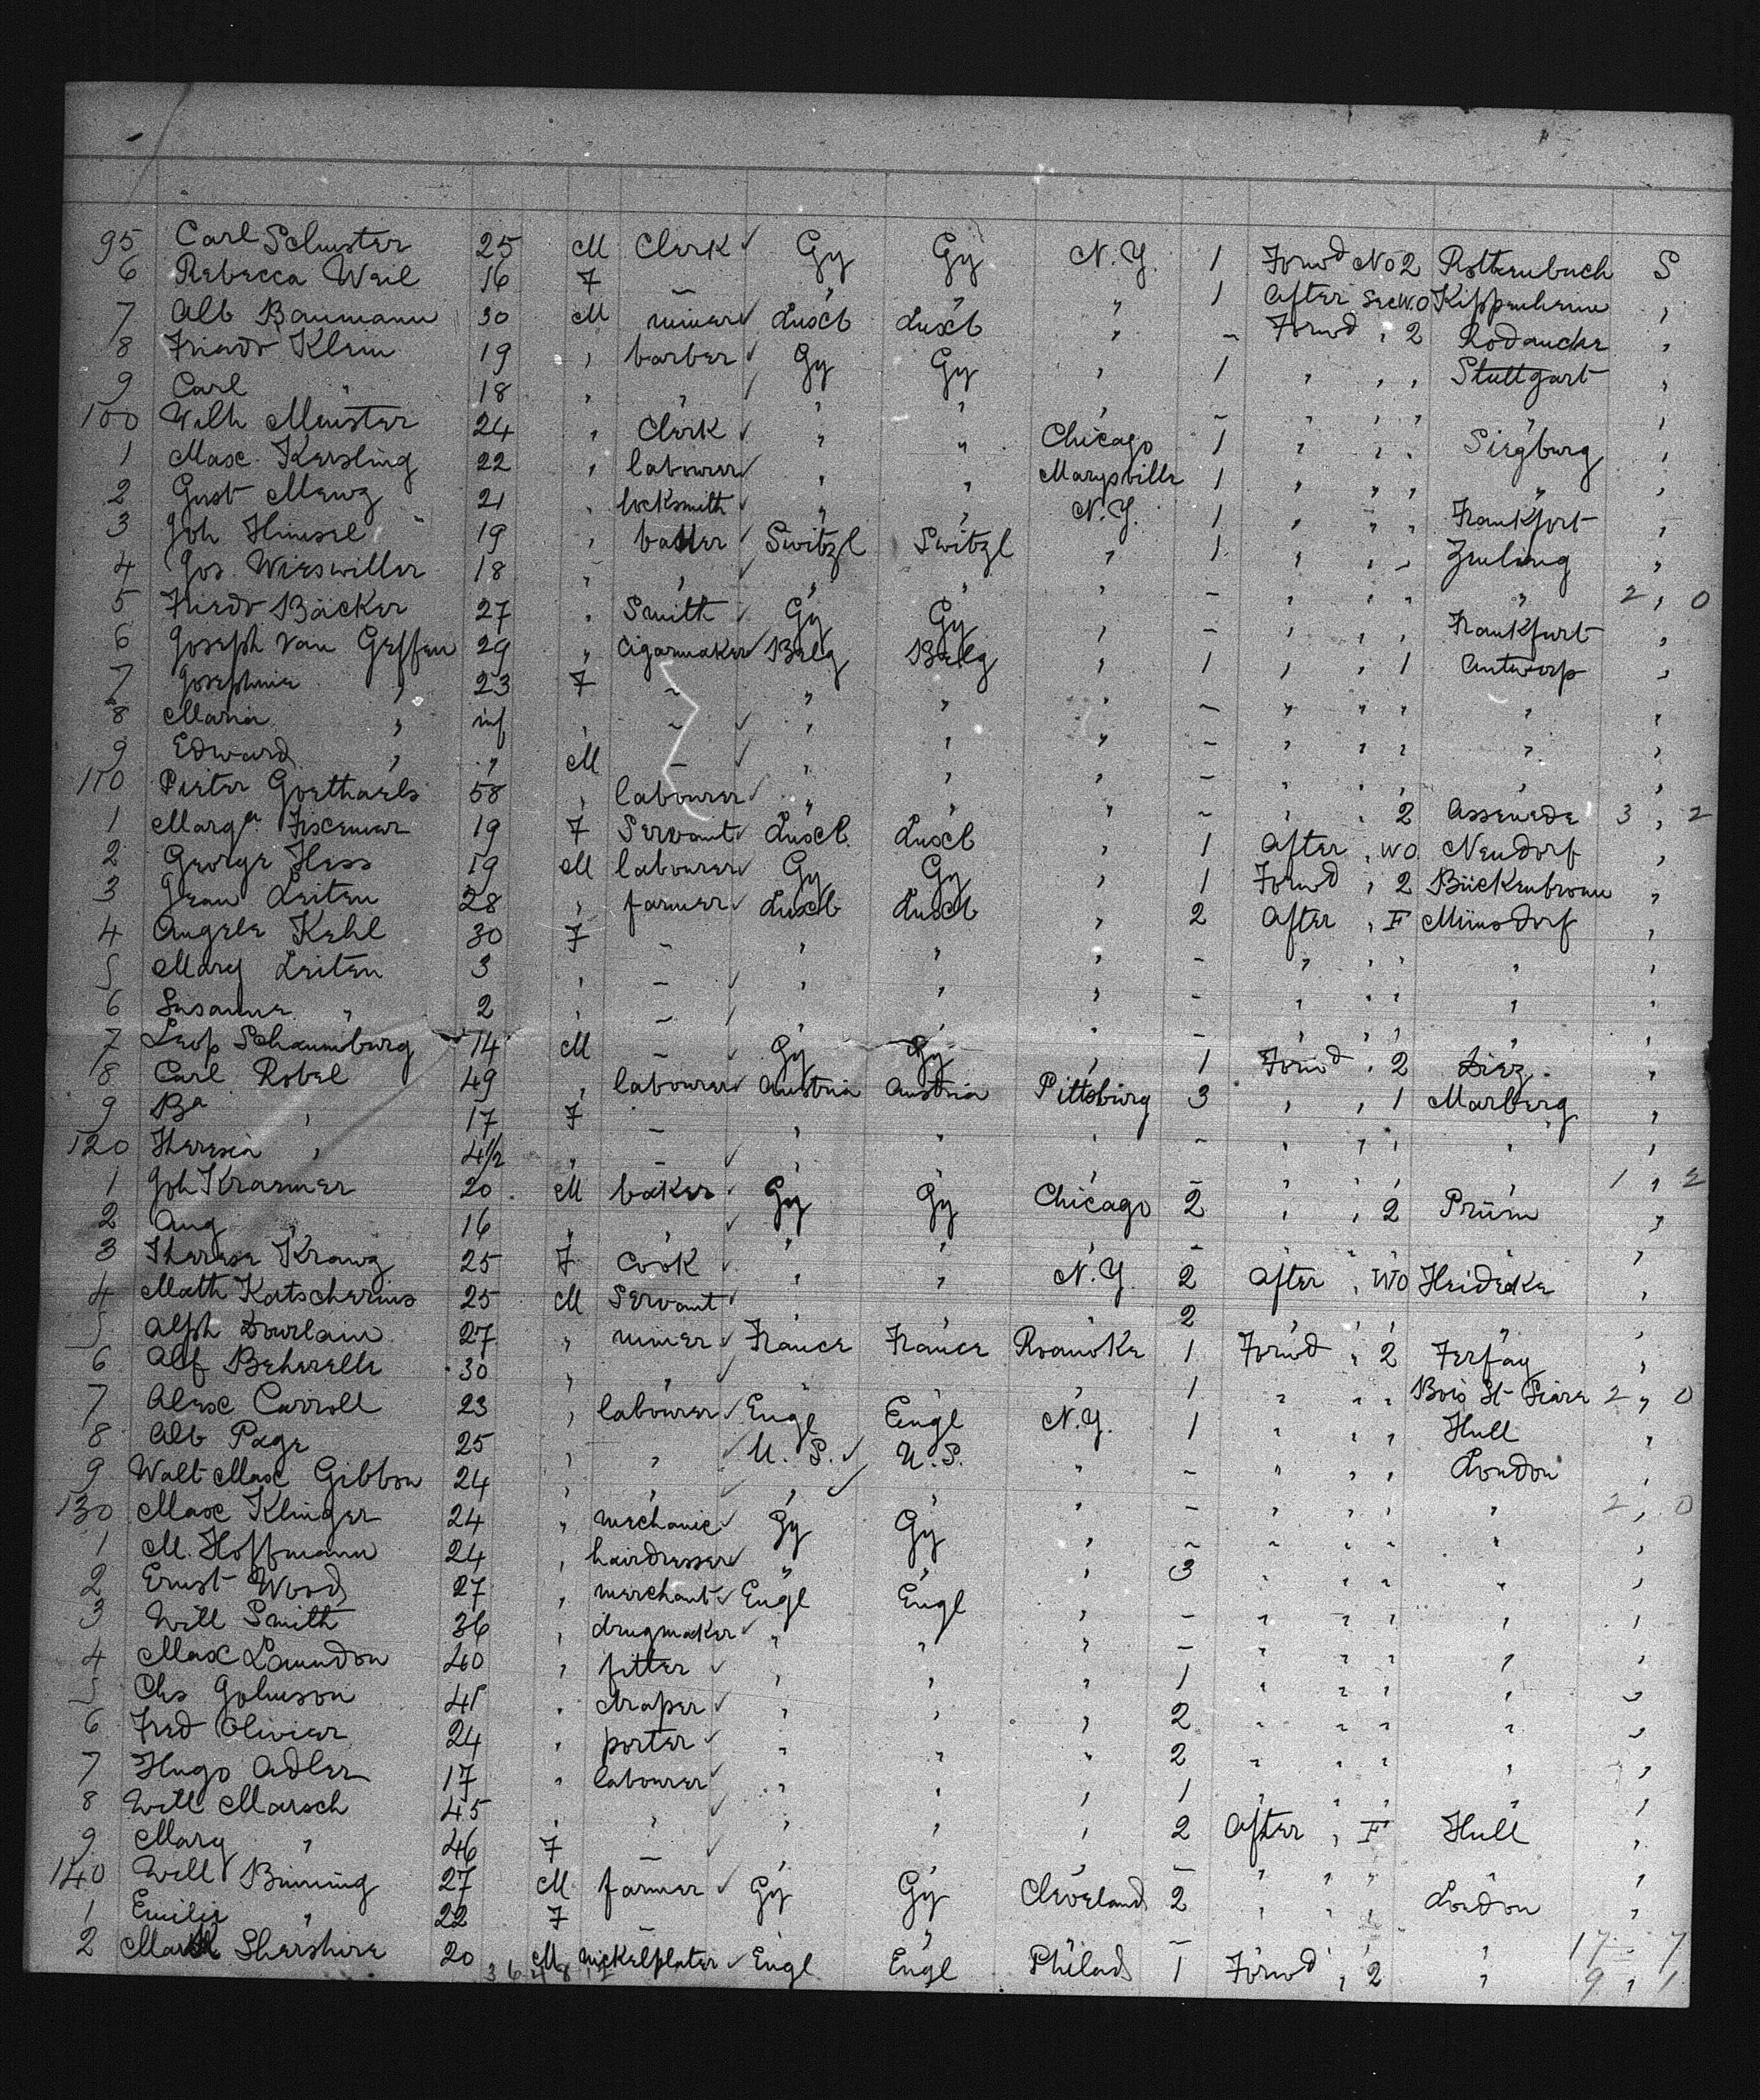 95 Carl Schuster 25 M Clerk ✓ Gy Gy N.Y. 1 Forwd No 2 Rottenbuch S
6 Rebecca Weil 16 F – " " " 1 After Sec WO Kippenheim "
7 Alb Baumann 30 M miner ✓ Luxb Luxb " – Forwd " 2 Rodauche "
8 Friedr Klein 19 " barber ✓ Gy Gy " 1 " " " Stuttgart "
9 Carl " 18 " " ✓ " " " – " " " " "
100 Wilh Menster 24 " Clerk ✓ " " Chicago 1 " " " Siegburg "
1 Max Kersling 22 " labourer ✓ " " Marysville 1 " " " " "
2 Gust Menz 21 " locksmith ✓ " " N.Y. 1 " " " Frankfort "
3 Joh Himsel 19 " ✓ Switzl Switzl " 1 " " " "
4 Jos Wieswiller 18 " " ✓ " " " – " " " " 2 " 0
5 Friedr Bäcker 27 " Smith ✓ Gy Gy " – " " " Frankfurt "
6 Joseph van Geffen 29 " Cigarmaker ✓ Belg Belg " 1 " " 1 Antwerp "
7 Josephine " 23 F – " " " – " " " " "
8 Maria " inf " – ✓ " " " – " " " " "
9 Edward " " M – ✓ " " " – " " " " "
110 Pieter Goethaels 58 " labourer ✓ " " " – " " 2 Assenede 3 " 2
1 Marga 19 F Servant ✓ Luxb. Luxb " 1 After " WO Neudorf "
2 George Hess 19 M labourer ✓ Gy Gy " 1 Forwd " 2 Bückenbronn "
3 Jean Leiten 28 " farmer ✓ Luxb Luxb " 2 After " F Münsdorf "
4 Angele Kehl 30 F – " " " – " " " " "
5 Mary Leiten 3 " – ✓ " " " – " " " " "
6 Susanne " 2 " – ✓ " " " – " " " " "
7 Leop Schaumburg 14 M – ✓ Gy Gy " 1 Forwd " 2 Diez "
8 Carl Robel 49 " labourer ✓ Austria Austria Pittsburg 3 " " 1 Marberg "
9 Ba " 17 F – " " " – " " " " "
120 Theresia " 4½ " – ✓ " " " – " " " " 1 " 2
1 Joh Kraemer 20 M baker ✓ Gy Gy Chicago 2 " " 2 Prüm "
2 Aug " 16 " " ✓ " " " – " " " " "
3 Therese Kranz 25 F Cook ✓ " " N.Y. 2 After " WO Heidecke "
4 Math Katscherius 25 M Servant ✓ " " " 2 " " " " "
5 Alph Dourlain 27 " miner ✓ France France Roanoke 1 Forwd " 2 Ferfay "
6 Alf Beherelle 30 " " " " " 1 " " " Bois St Piere 2 " 0
7 Alex Carroll 23 " labourer ✓ Engl Engl N.Y. 1 " " " Hull "
8 Alb Page 25 " " ✓ U.S. ✓ U.S. " – " " " London "
9 Walt Max Gibbon 24 " " ✓ " ✓ " " – " " " " 2 " 0
130 Max Klinger 24 " mechanic ✓ Gy Gy " – " " " " "
1 M. Hoffmann 24 " hairdresser ✓ " " " 3 " " " " "
2 Ernst Wood 27 " merchant ✓ Engl Engl " – " " " " "
3 Will Smith 36 " drugmaker ✓ " " " – " " " " "
4 Max Lamndon 40 " fitter ✓ " " " 1 " " " " "
5 Chs Johnson 41 " draper ✓ " " " 2 " " " " "
6 Fred Olivier 24 " porter ✓ " " " 2 " " " " "
7 Hugo Adler 17 " labourer ✓ " " " 1 " " " " "
8 Will Marsch 45 " " ✓ " " " 2 After " F Hull "
9 Mary " 46 F – ✓ " " " – " " " " "
140 Will Binning 27 M farmer ✓ Gy Gy Cleveland 2 " " " London "
1 Emilie " 22 F – " " " – " " " " 17 " 7
2 Mark Shershire 20 M nickelplater ✓ Engl Engl Philad 1 Forwd " 2 " 9 " 1